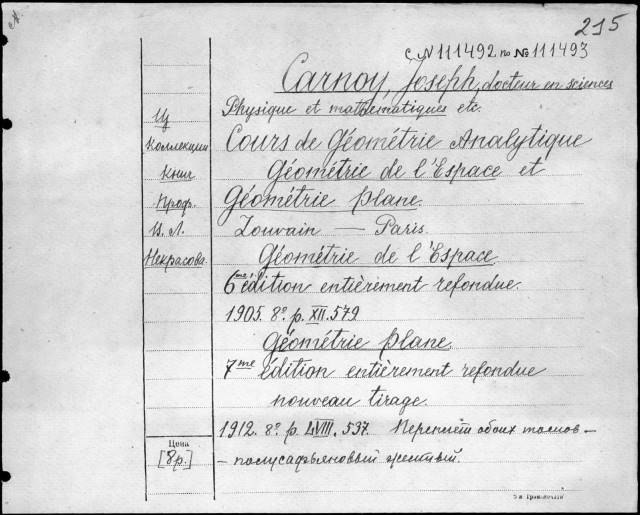 215
с № 111492 по № 111493
Carnoy, Joseph, docteur en sciences
Physique et mathématiques etc.
Из
Коллекции
Книг
Проф.
В. Л.
Некрасова.
Cours de Géométrie Analytique
Géométrie de l'Espace et
Géométrie plane.
Louvain — Paris.
Géométrie de l'Espace.
6me édition entièrement refondue.
1905. 8º. p. XII. 579
Géométrie plane.
7me édition entièrement refondue
nouveau tirage.
1912. 8º. p. LVIII. 537. Переплёт обоих томов —
— полусафьяновый жёлтый.
Цена
[8 р.]